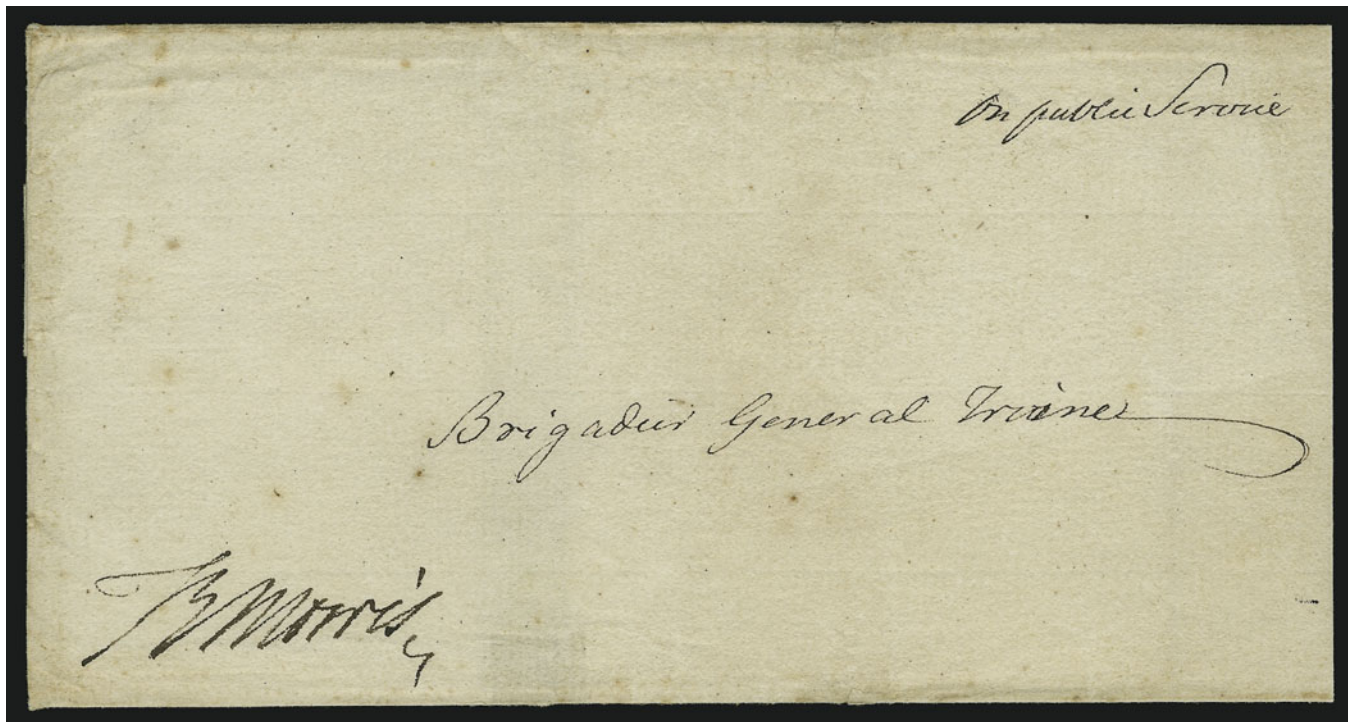 On public Service
Brigadier General Irvine
R Morris